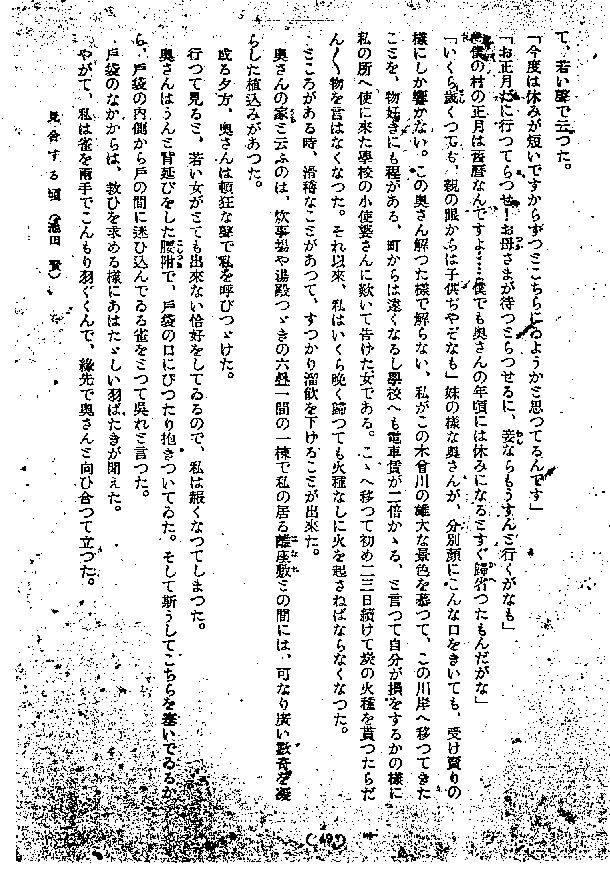 て、若い聲で云つた。
「今度は休みが短いですからずつとこちらにゐようかと思つてるんです」
「お正月だに行つてらつせ！お母さまが待つとらつせるに、妾ならもうすんと行くがなも」
「僕の村の正月は舊暦なんですよ……僕でも奥さんの年頃には休みになるとすぐ歸省つたもんだがな」
「いくら歳くつても、親の眼からは子供ぢやぞなも」妹の樣な奥さんが、分別顔にこんな口をきいても、受け賣りの
樣にしか響かない。この奥さん解つた樣で解らない、私がこの木曾川の雄大な景色を慕つて、この川岸へ移つてきた
ことを、物好きにも程がある、町からは遠くなるし學校へも電車賃が二倍かゝる、と言つて自分が損をするかの樣に
私の所へ使に來た學校の小使婆さんに歎いて告けた女である。こゝへ移つて初め二三日續けて炭の火種を貰つたらだ
ん〱物を言はなくなつた。それ以來、私はいくら晩く歸つても火種なしに火を起さねばならなくなつた。
ところがある時、滑稽なことがあつて、すつかり溜飲を下けることが出來た。
奥さんの家と云ふのは、炊事場や湯殿つゞきの六疊一間の一棟で私の居る離座敷との間には、可なり廣い數奇を凝
らした植込みがあつた。
或る夕方、奥さんは頓狂な聲で私を呼びつゞけた。
行つて見ると、若い女がとても出來ない恰好をしてゐるので、私は赧くなつてしまつた。
奥さんはうんと背延びをした腰附で、戸袋の口にぴつたり抱きついてゐた。そして斯うしてこちらを塞いでゐるか
ら、戸袋の内側から戸の間に迷ひ込んでゐる雀をとつて呉れと言つた。
戸袋のなかからは、救ひを求める樣にあはたゞしい羽ばたきが聞えた。
やがて、私は雀を兩手でこんもり羽ぐくんで、緣先で奥さんと向ひ合つて立つた。
見合する頃（池田　賢）